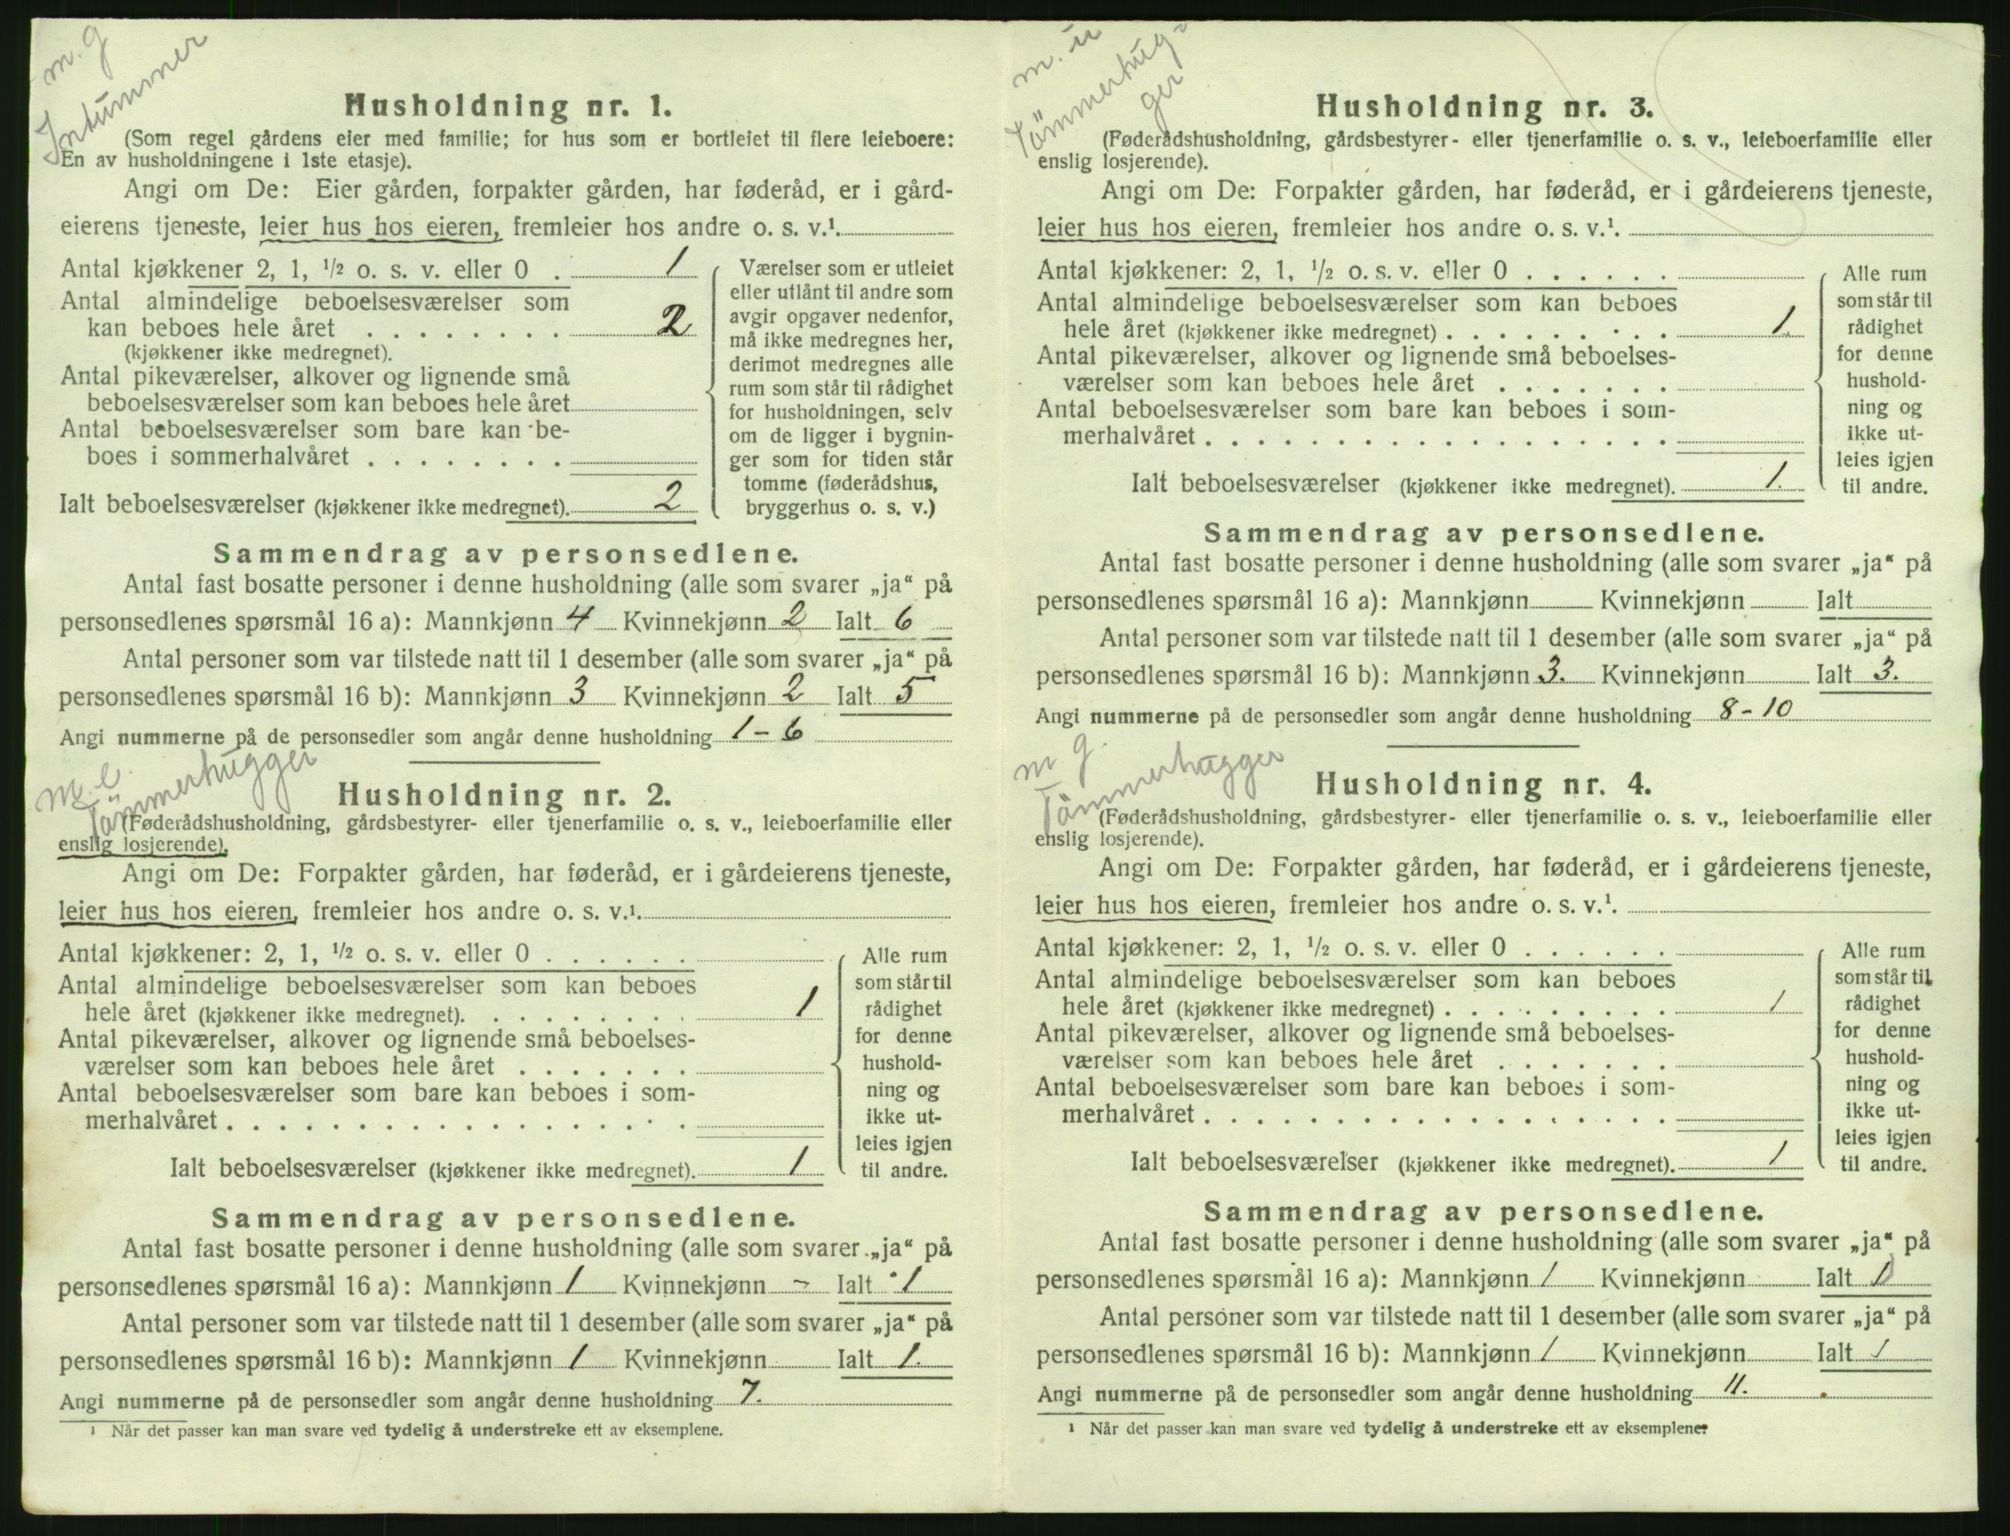 m. g
Husholdning nr. 1.
(Som regel gårdens eier med familie; for hus som er bortleiet til flere leieboere:
En av husholdningene i 1ste etasje).
Angi om De: Eier gården, forpakter gården, har føderåd, er i gård-
eierens tjeneste, leier hus hos eieren, fremleier hos andre o. s. v.¹.
Antal kjøkkener 2, 1, ½ o. s. v. eller 0 . 1
Antal almindelige beboelsesværelser som
kan beboes hele året . . . . . . . . 2
(kjøkkener ikke medregnet).
Antal pikeværelser, alkover og lignende små
beboelsesværelser som kan beboes hele året
Antal beboelsesværelser som bare kan be-
boes i sommerhalvåret . . . . . . . .
Ialt beboelsesværelser (kjøkkener ikke medregnet). 2
Værelser som er utleiet
eller utlånt til andre som
avgir opgaver nedenfor,
må ikke medregnes her,
derimot medregnes alle
rum som står til rådighet
for husholdningen, selv
om de ligger i bygnin-
ger som for tiden står
tomme (føderådshus,
bryggerhus o. s. v.)
Sammendrag av personsedlene.
Antal fast bosatte personer i denne husholdning (alle som svarer „ja“ på
personsedlenes spørsmål 16 a): Mannkjønn 4 Kvinnekjønn 2 Ialt 6
Antal personer som var tilstede natt til 1 desember (alle som svarer „ja“ på
personsedlenes spørsmål 16 b): Mannkjønn 3 Kvinnekjønn 2 Ialt 5
Angi nummerne på de personsedler som angår denne husholdning 1 - 6
m. e.
Tömmerhugger
Husholdning nr. 2.
(Føderådshusholdning, gårdsbestyrer- eller tjenerfamilie o. s. v., leieboerfamilie eller
enslig losjerende).
Angi om De: Forpakter gården, har føderåd, er i gårdeierens tjeneste,
leier hus hos eieren, fremleier hos andre o. s. v.¹.
Antal kjøkkener: 2, 1, ½ o. s. v. eller 0 . . . . . .
Antal almindelige beboelsesværelser som kan beboes
hele året (kjøkkener ikke medregnet). . . . . . . . . 1
Antal pikeværelser, alkover og lignende små beboelses-
værelser som kan beboes hele året . . . . . . .
Antal beboelsesværelser som bare kan beboes i som-
merhalvåret . . . . . . . . . . . . . . . . . .
Ialt beboelsesværelser (kjøkkener ikke medregnet). 1
Alle rum
som står til
rådighet
for denne
hushold-
ning og
ikke ut-
leies igjen
til andre.
Sammendrag av personsedlene.
Antal fast bosatte personer i denne husholdning (alle som svarer „ja“ på
personsedlenes spørsmål 16 a): Mannkjønn 1 Kvinnekjønn - Ialt 1
Antal personer som var tilstede natt til 1 desember (alle som svarer „ja“ på
personsedlenes spørsmål 16 b): Mannkjønn 1 Kvinnekjønn Ialt 1.
Angi nummerne på de personsedler som angår denne husholdning 7.
¹ Når det passer kan man svare ved tydelig å understreke ett av eksemplene.
m. u
Tömmerhug-
ger
Husholdning nr. 3.
(Føderådshusholdning, gårdsbestyrer- eller tjenerfamilie o. s. v., leieboerfamilie eller
enslig losjerende).
Angi om De: Forpakter gården, har føderåd, er i gårdeierens tjeneste,
leier hus hos eieren, fremleier hos andre o. s. v.¹.
Antal kjøkkener: 2, 1, ½ o. s. v. eller 0 . . . . . .
Antal almindelige beboelsesværelser som kan beboes
hele året (kjøkkener ikke medregnet) . . . . . . . . . 1
Antal pikeværelser, alkover og lignende små beboelses-
værelser som kan beboes hele året . . . . . . .
Antal beboelsesværelser som bare kan beboes i som-
merhalvåret . . . . . . . . . . . . . . . . . .
Ialt beboelsesværelser (kjøkkener ikke medregnet). 1.
Alle rum
som står til
rådighet
for denne
hushold-
ning og
ikke ut-
leies igjen
til andre.
Sammendrag av personsedlene.
Antal fast bosatte personer i denne husholdning (alle som svarer „ja“ på
personsedlenes spørsmål 16 a): Mannkjønn Kvinnekjønn Ialt
Antal personer som var tilstede natt til 1 desember (alle som svarer „ja“ på
personsedlenes spørsmål 16 b): Mannkjønn 3. Kvinnekjønn Ialt 3.
Angi nummerne på de personsedler som angår denne husholdning 8 - 10
m g.
Tömmerhugger
Husholdning nr. 4.
(Føderådshusholdning, gårdsbestyrer- eller tjenerfamilie o. s. v., leieboerfamilie eller
enslig losjerende).
Angi om De: Forpakter gården, har føderåd, er i gårdeierens tjeneste,
leier hus hos eieren, fremleier hos andre o. s. v.¹.
Antal kjøkkener: 2, 1, ½ o. s. v. eller 0 . . . . . .
Antal almindelige beboelsesværelser som kan beboes
hele året (kjøkkener ikke medregnet) . . . . . . . . . 1
Antal pikeværelser, alkover og lignende små beboelses-
værelser som kan beboes hele året . . . . . . .
Antal beboelsesværelser som bare kan beboes i som-
merhalvåret . . . . . . . . . . . . . . . . . .
Ialt beboelsesværelser (kjøkkener ikke medregnet). 1
Alle rum
som står til
rådighet
for denne
hushold-
ning og
ikke ut-
leies igjen
til andre.
Sammendrag av personsedlene.
Antal fast bosatte personer i denne husholdning (alle som svarer „ja“ på
personsedlenes spørsmål 16 a): Mannkjønn 1 Kvinnekjønn Ialt 1
Antal personer som var tilstede natt til 1 desember (alle som svarer „ja“ på
personsedlenes spørsmål 16 b): Mannkjønn 1 Kvinnekjønn Ialt 1
Angi nummerne på de personsedler som angår denne husholdning 11.
¹ Når det passer kan man svare ved tydelig å understreke ett av eksemplene.